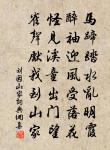 馬蹄踏水亂明霞
醉袖迎風受落花
怪見溪童出門望
雀聲先我到山家
劉因山家詩典網集